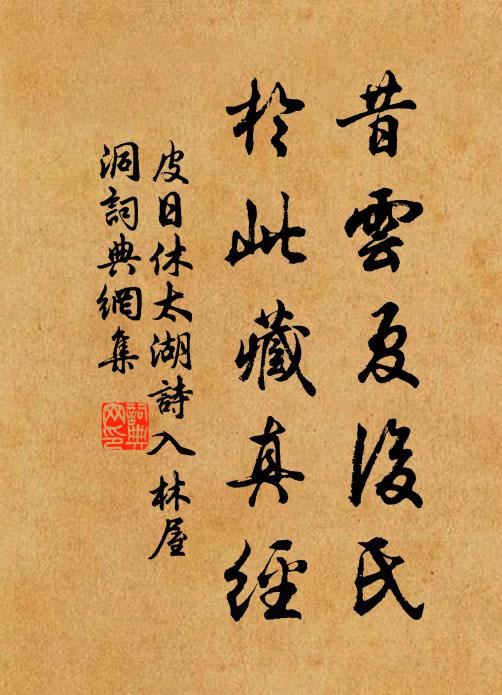 昔雲夏後氏
於此藏真經
皮日休太湖詩入林屋
洞詞典網集
詞典網印